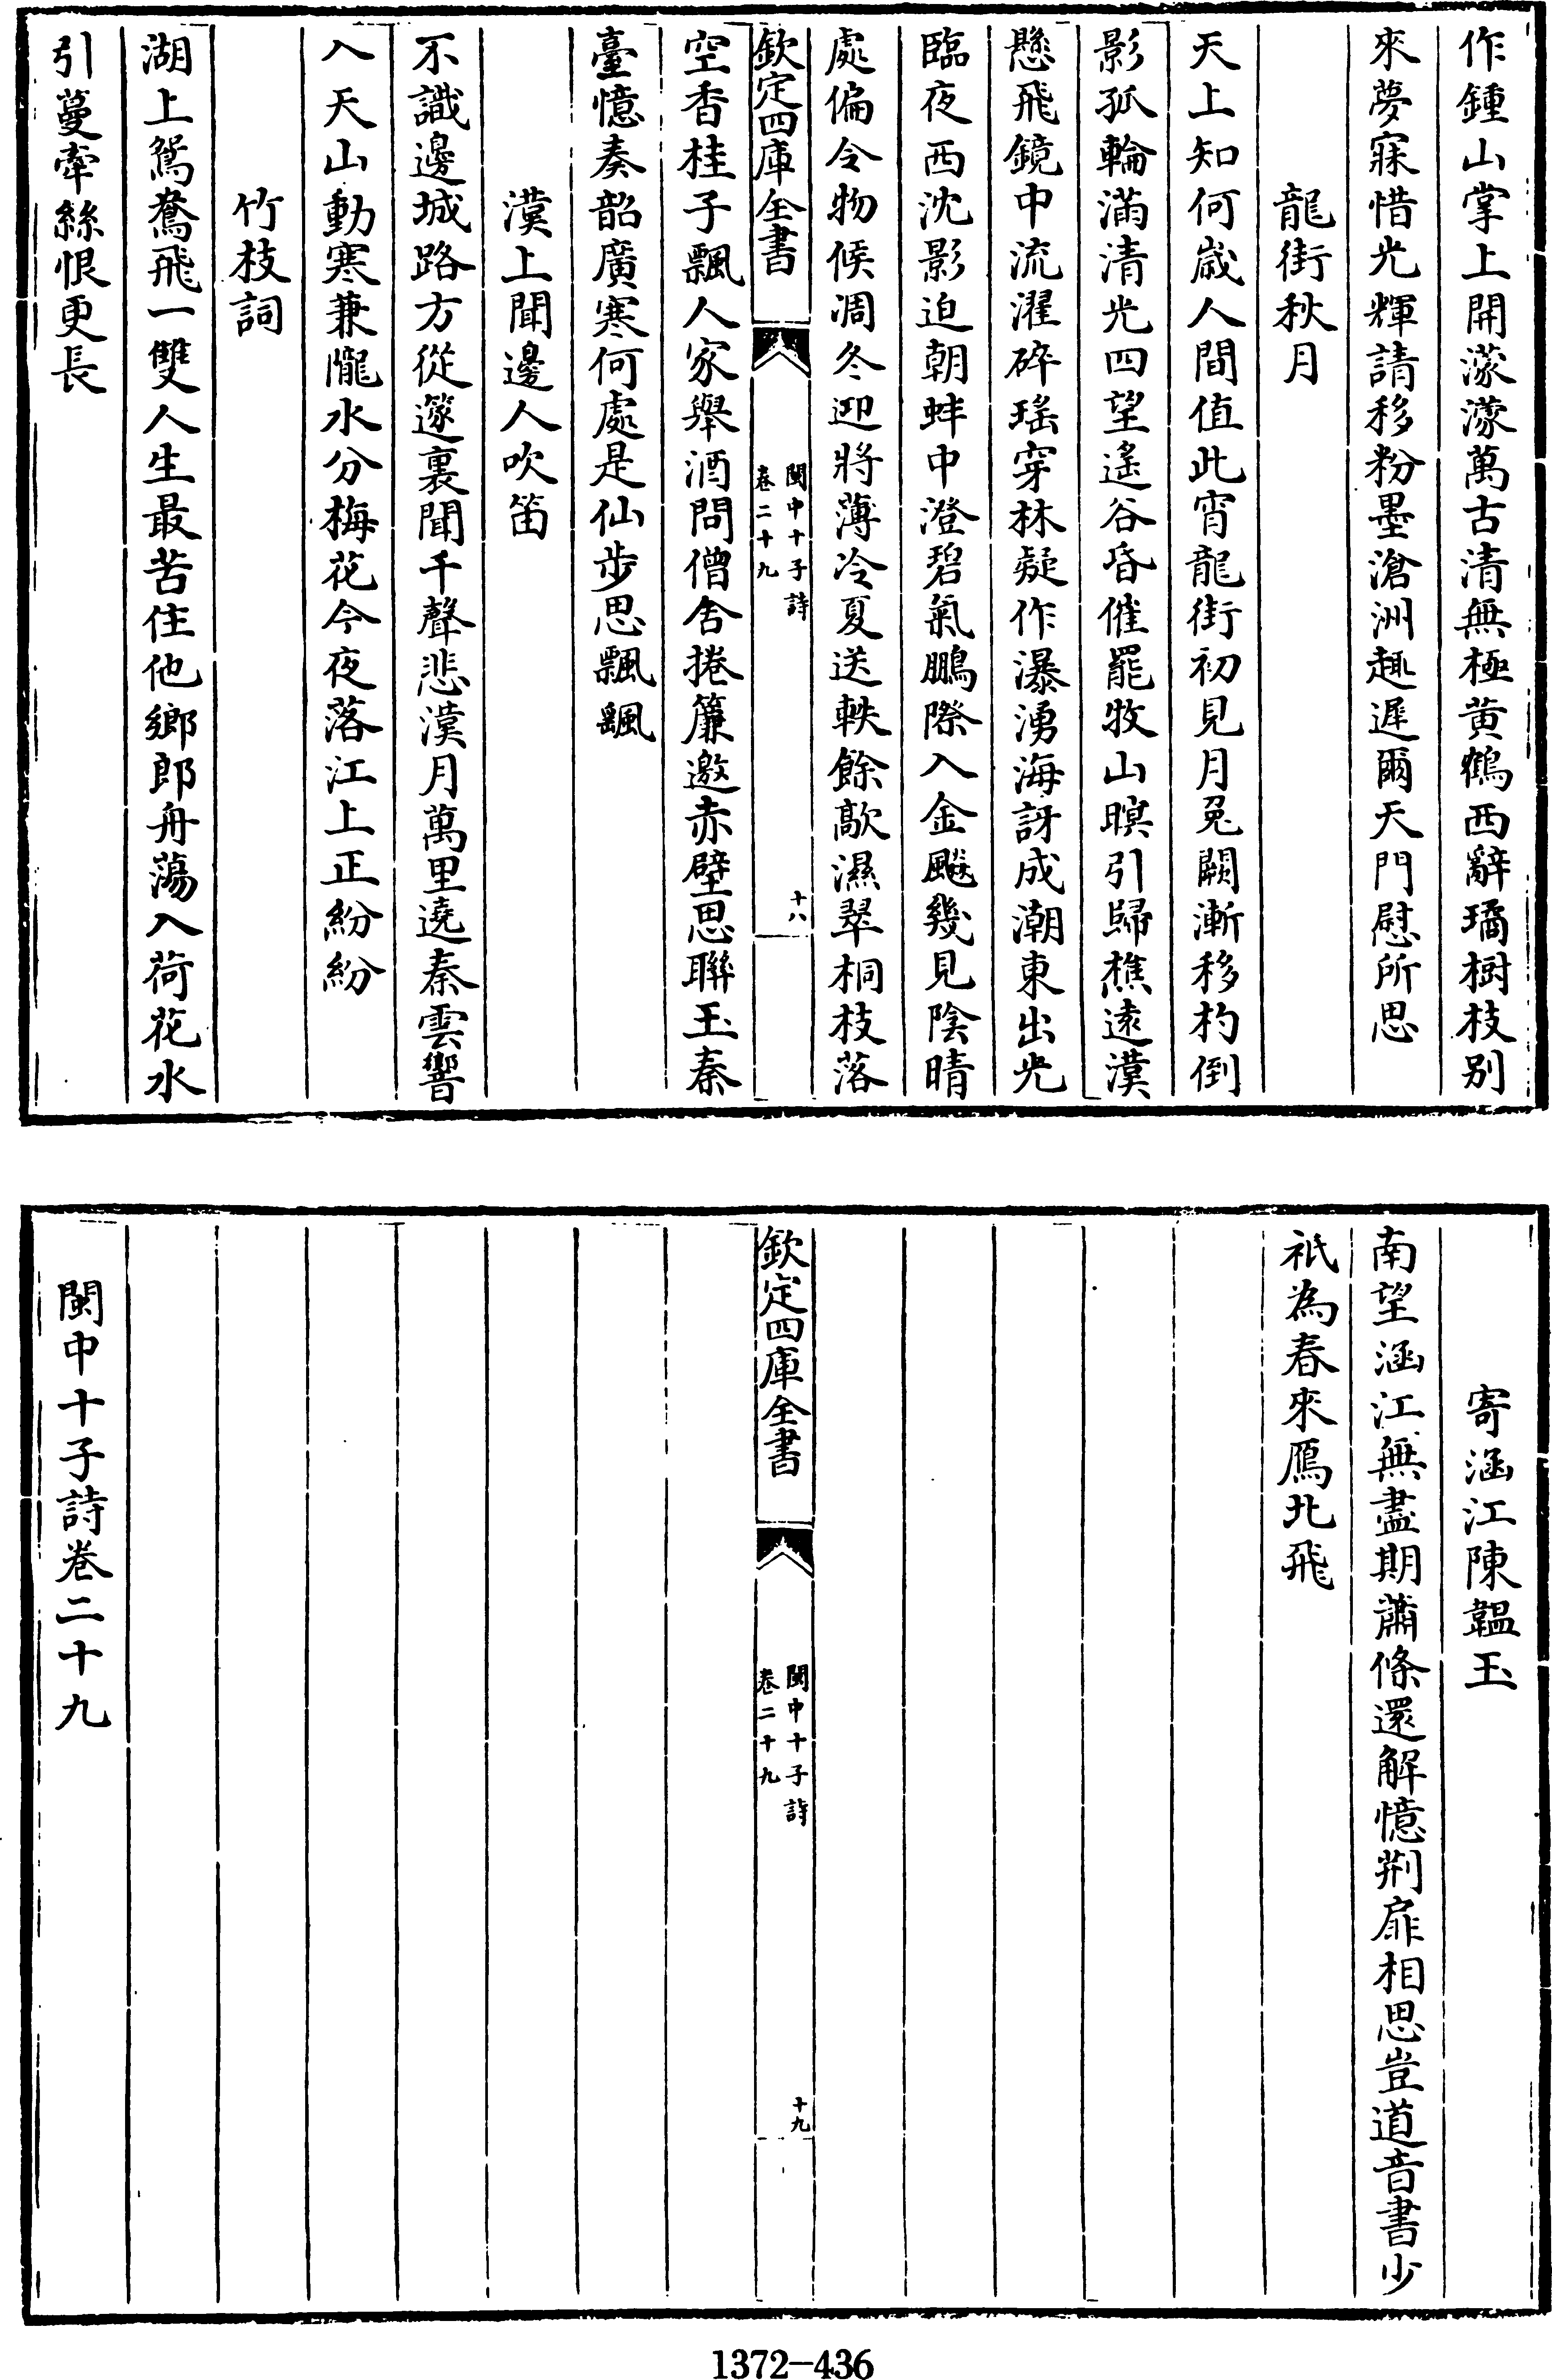 作鍾山掌上開濛濛萬古清無極黄鶴西辭璚樹枝别
來夢寐惜光輝請移粉墨滄洲趣遲爾天門慰所思
龍街秋月
天上知何嵗人間值此宵龍街初見月兎闕漸移杓倒
影孤輪滿清光四望遙谷昏催罷牧山暝引歸樵逺漢
懸飛鏡中流濯碎瑤穿林疑作瀑湧海訝成潮東出光
臨夜西沈影迫朝蚌中澄碧氣鵬際入金飈幾見陰晴
處偏令物候凋冬迎將薄冷夏送軼餘歊濕翠桐枝落
欽定四庫全書
閩中十子詩
卷二十九
十八
空香桂子飄人家舉酒問僧舍捲簾邀赤壁思聯玉秦
臺憶奏韶廣寒何處是仙步思飄飄
漢上聞邊人吹笛
不識邊城路方從邃裏聞千聲悲漢月萬里遶秦雲響
入天山動寒兼隴水分梅花今夜落江上正紛紛
竹枝詞
湖上鴛鴦飛一雙人生最苦住他鄉郎舟蕩入荷花水
引蔓牽絲恨更長
寄涵江陳韞玉
南望涵江無盡期蕭條還解憶荆扉相思豈道音書少
祇為春來鴈北飛
欽定四庫全書
閩中十子詩
卷二十九
十九
閩中十子詩卷二十九
1372-436